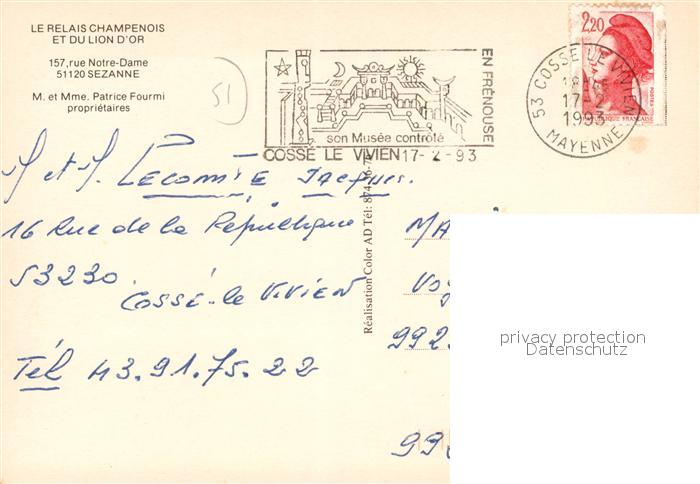 LE RELAIS CHAMPENOIS
ET DU LION D'OR
157, rue Notre-Dame
51120 SEZANNE
M. et Mme. Patrice Fourmi
propriétaires
51
EN FRÉNOUSE
son Musée contrôlé
COSSÉ LE VIVIEN 17-2-93
2,20
53 COSSE LE VIVIEN
17-2
1993
MAYENNE
POSTES
PUBLIQUE FRANÇAISE
Lecomte Jacques.
16 Rue de la République
53230.
Cossé-le Vivien
Tél 43.91.75.22
Réalisation Color AD Tél:
MA
992
99
privacy protection
Datenschutz